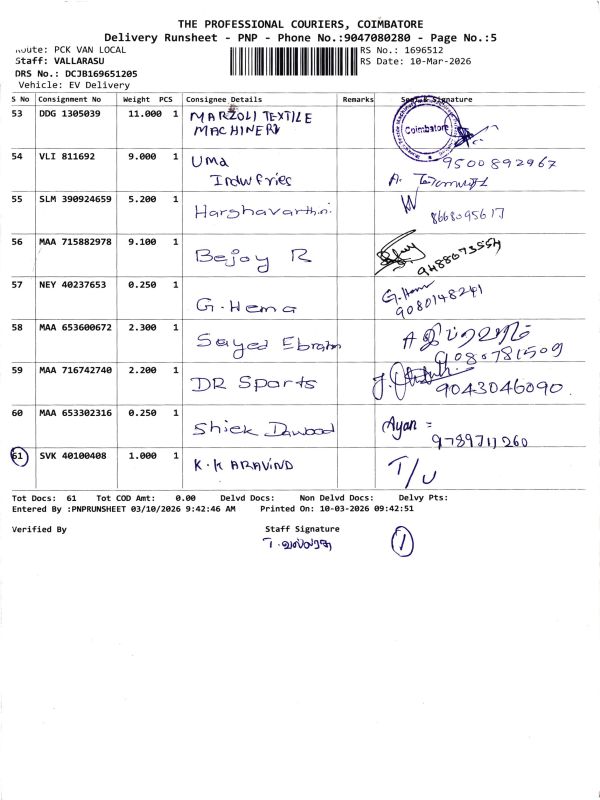 THE PROFESSIONAL COURIERS, COIMBATORE
Delivery Runsheet - PNP - Phone No.:9047080280 - Page No.:5
Route: PCK VAN LOCAL
RS No.: 1696512
Staff: VALLARASU
RS Date: 10-Mar-2026
DRS No.: DCJB169651205
Vehicle: EV Delivery
S No Consignment No Weight PCS Consignee Details Remarks Seal & Signature
53 DDG 1305039 11.000 1 MARZOLI TEXTILE
MACHINERY
Coimbatore
54 VLI 811692 9.000 1 Uma 9500892967
Industries
55 SLM 390924659 5.200 1 Harshavarthini 8668095617
56 MAA 715882978 9.100 1 Bejoy R 9488073554
57 NEY 40237653 0.250 1 G. Hema G. Hema
9080148241
58 MAA 653600672 2.300 1 Sayed Ebrahm
9080781509
59 MAA 716742740 2.200 1 DR Sports 9043046090
60 MAA 653302316 0.250 1 Shiek Dawood Ayan =
9789711260
61 SVK 40100408 1.000 1 K.K ARAVIND T/U
Tot Docs: 61 Tot COD Amt: 0.00 Delvd Docs: Non Delvd Docs: Delvy Pts:
Entered By :PNPRUNSHEET 03/10/2026 9:42:46 AM Printed On: 10-03-2026 09:42:51
Verified By Staff Signature
1